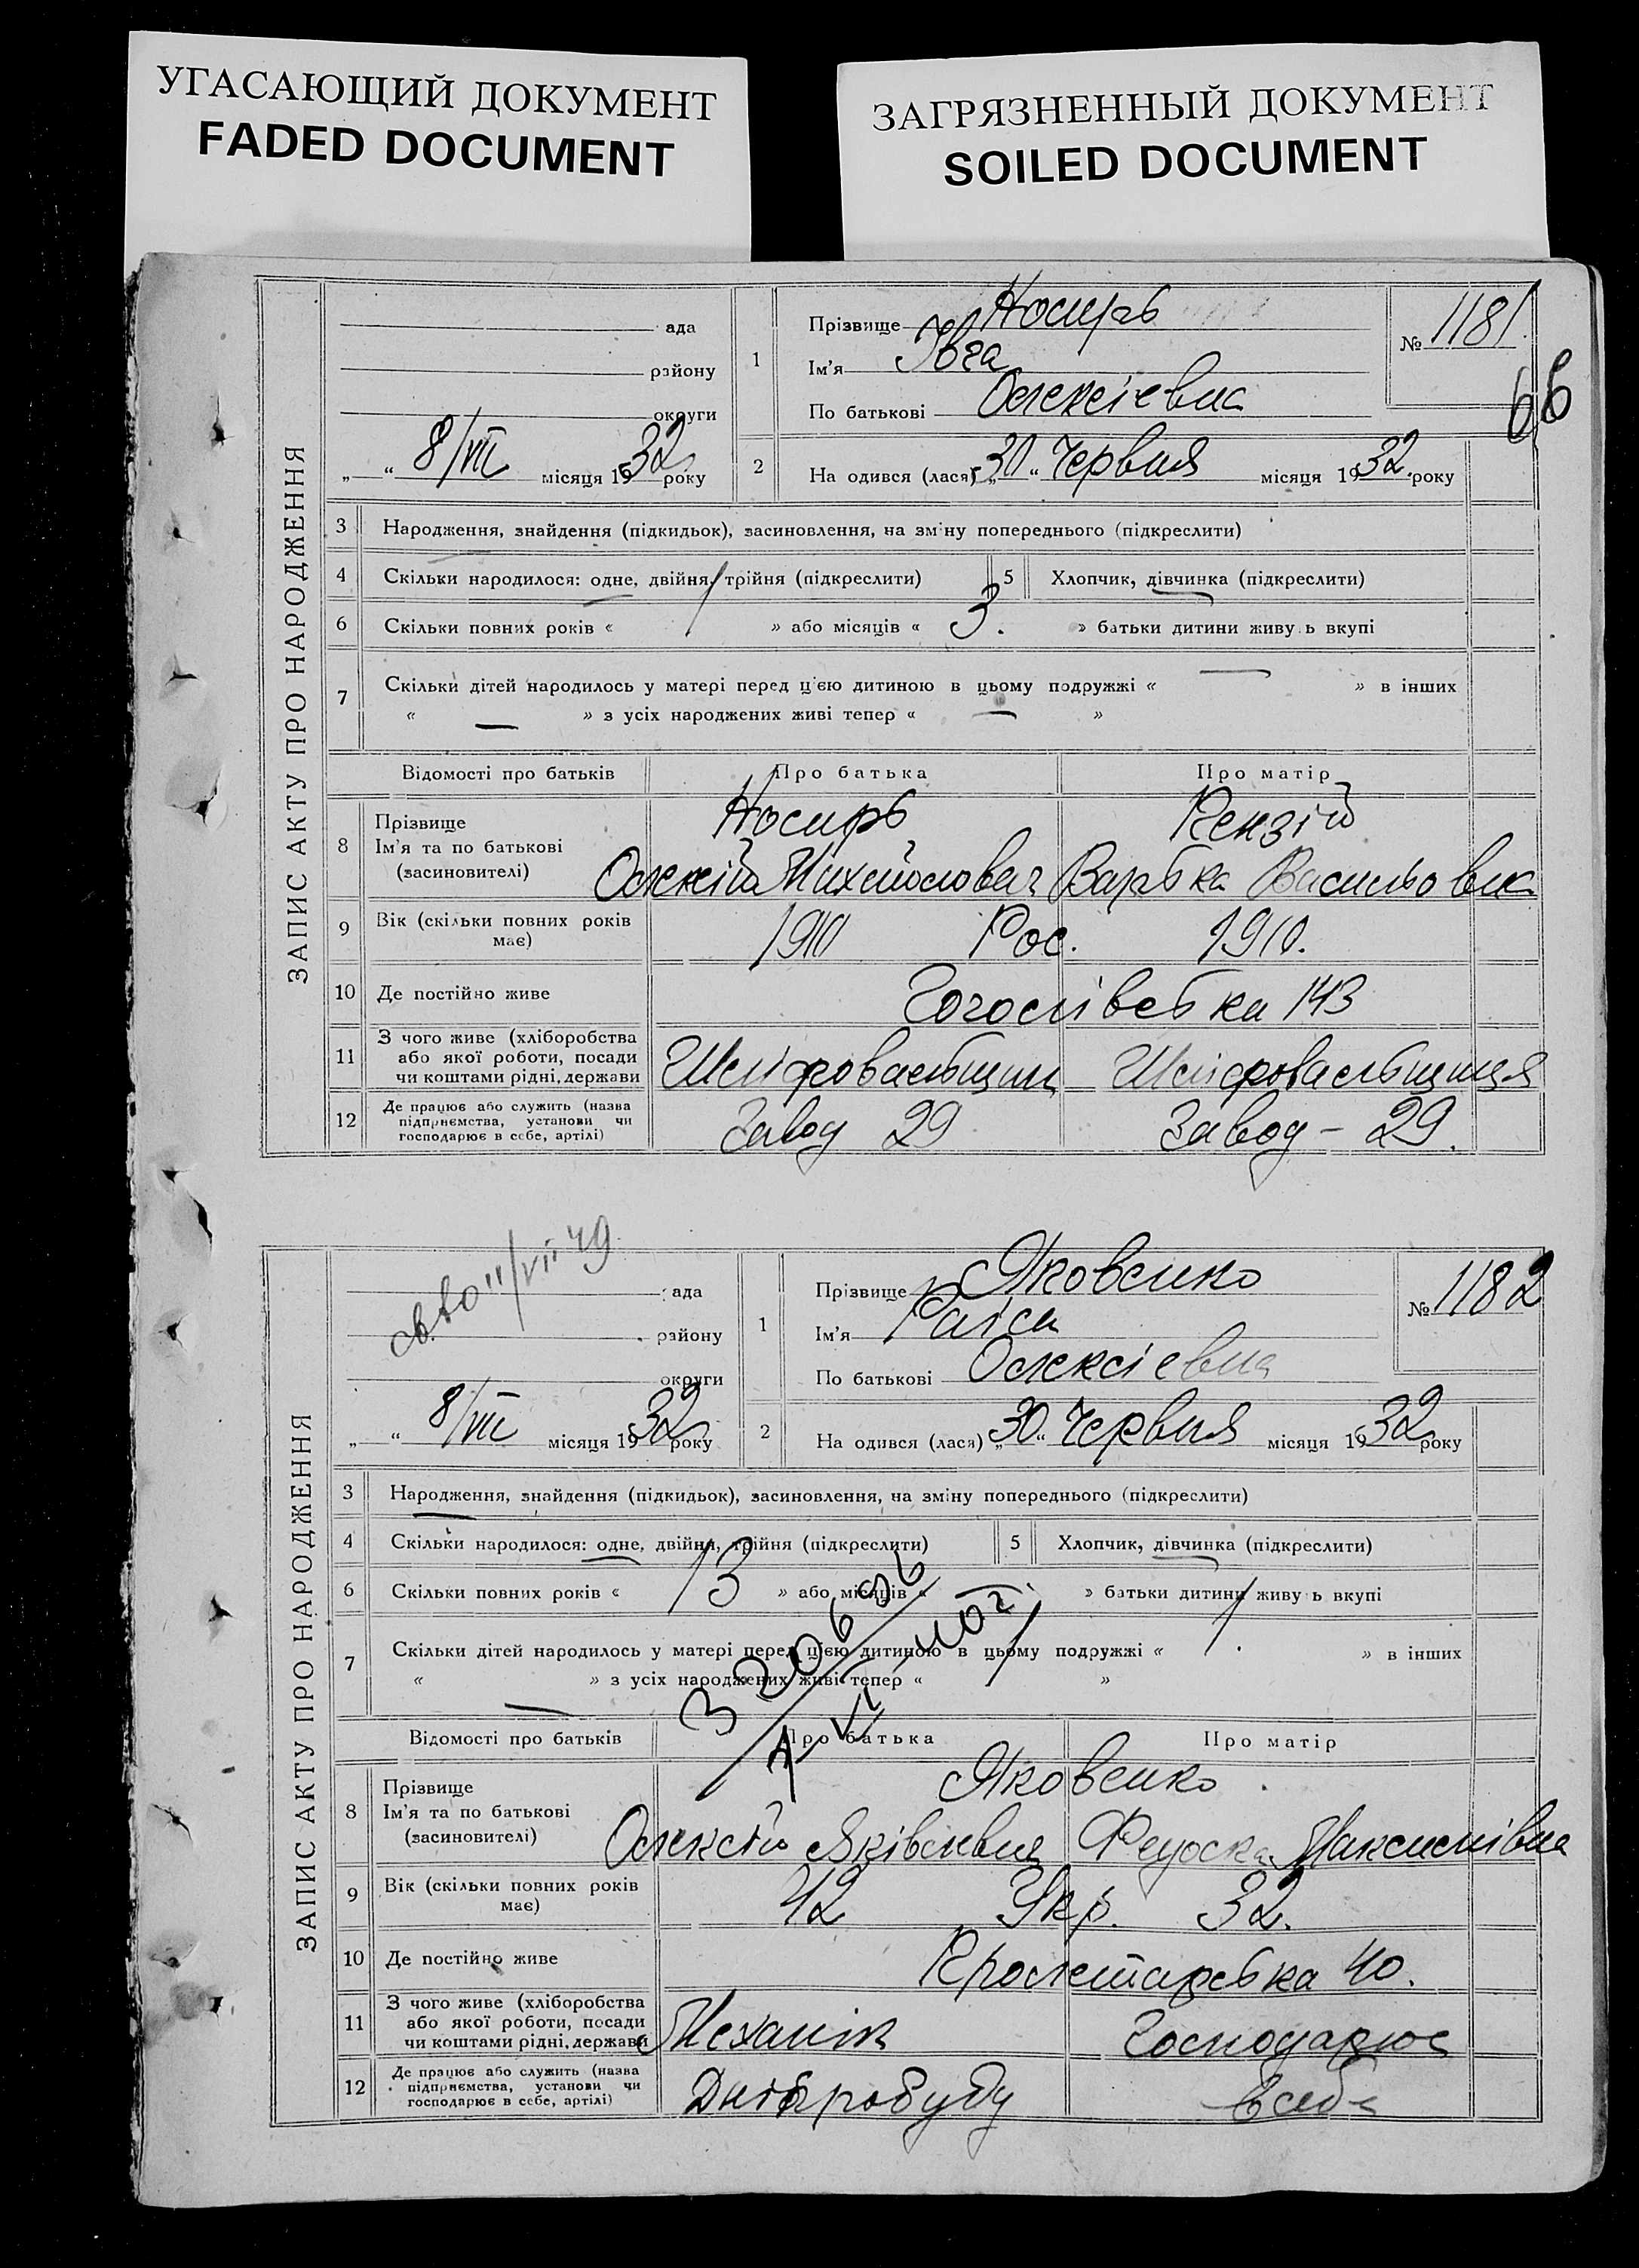 УГАСАЮЩИЙ ДОКУМЕНТ
FADED DOCUMENT
ЗАГРЯЗНЕННЫЙ ДОКУМЕНТ
SOILED DOCUMENT
ЗАПИС АКТУ ПРО НАРОДЖЕННЯ
ада
району
округи
„ “ 8/VII місяця 1932 року
1 Прізвище Носирь
Ім'я
По батькові Олексієвна
№ 1181
66
2 На одився (лася) „30“ Червня місяця 1932 року
3 Народження, знайдення (підкидьок), засиновлення, на зміну попереднього (підкреслити)
4 Скільки народилося: одне, двійня, трійня (підкреслити) 5 Хлопчик, дівчинка (підкреслити)
6 Скільки повних років « / » або місяців « 3. » батьки дитини живу ь вкупі
7 Скільки дітей народилось у матері перед цією дитиною в цьому подружжі « — » в інших
« — » з усіх народжених живі тепер « — »
Відомості про батьків Про батька Про матір
8 Прізвище
Ім'я та по батькові
(засиновителі)
Носирь
Олексій Михайлович
Кензій
Варька Васильовна
9 Вік (скільки повних років
має)
1910 Рос. 1910.
10 Де постійно живе Гоголівська 143
11 З чого живе (хліборобства
або якої роботи, посади
чи коштами рідні, держави
Шліфовальщик Шліфовальщиця
12 Де працює або служить (назва
підприємства, установи чи
господарює в себе, артілі)
Завод 29 Завод – 29.
ЗАПИС АКТУ ПРО НАРОДЖЕННЯ
ада
району
округи
„ “ 8/VII місяця 1932 року
1 Прізвище Яковенко
Ім'я Раіса
По батькові Олексієвна
№ 1182
2 На одився (лася) „30“ Червня місяця 1932 року
3 Народження, знайдення (підкидьок), засиновлення, на зміну попереднього (підкреслити)
4 Скільки народилося: одне, двійня, трійня (підкреслити) 5 Хлопчик, дівчинка (підкреслити)
6 Скільки повних років « 13 » або місяців « » батьки дитини живу ь вкупі
7 Скільки дітей народилось у матері перед цією дитиною в цьому подружжі « » в інших
« — » з усіх народжених живі тепер « »
Відомості про батьків Про батька Про матір
8 Прізвище
Ім'я та по батькові
(засиновителі)
Яковенко
Олексій Максимівна
9 Вік (скільки повних років
має)
42 Укр. 32.
10 Де постійно живе Пролетарська 40.
11 З чого живе (хліборобства
або якої роботи, посади
чи коштами рідні, держави
Механік Господарює
12 Де працює або служить (назва
підприємства, установи чи
господарює в себе, артілі)
Дніпробуду в себе